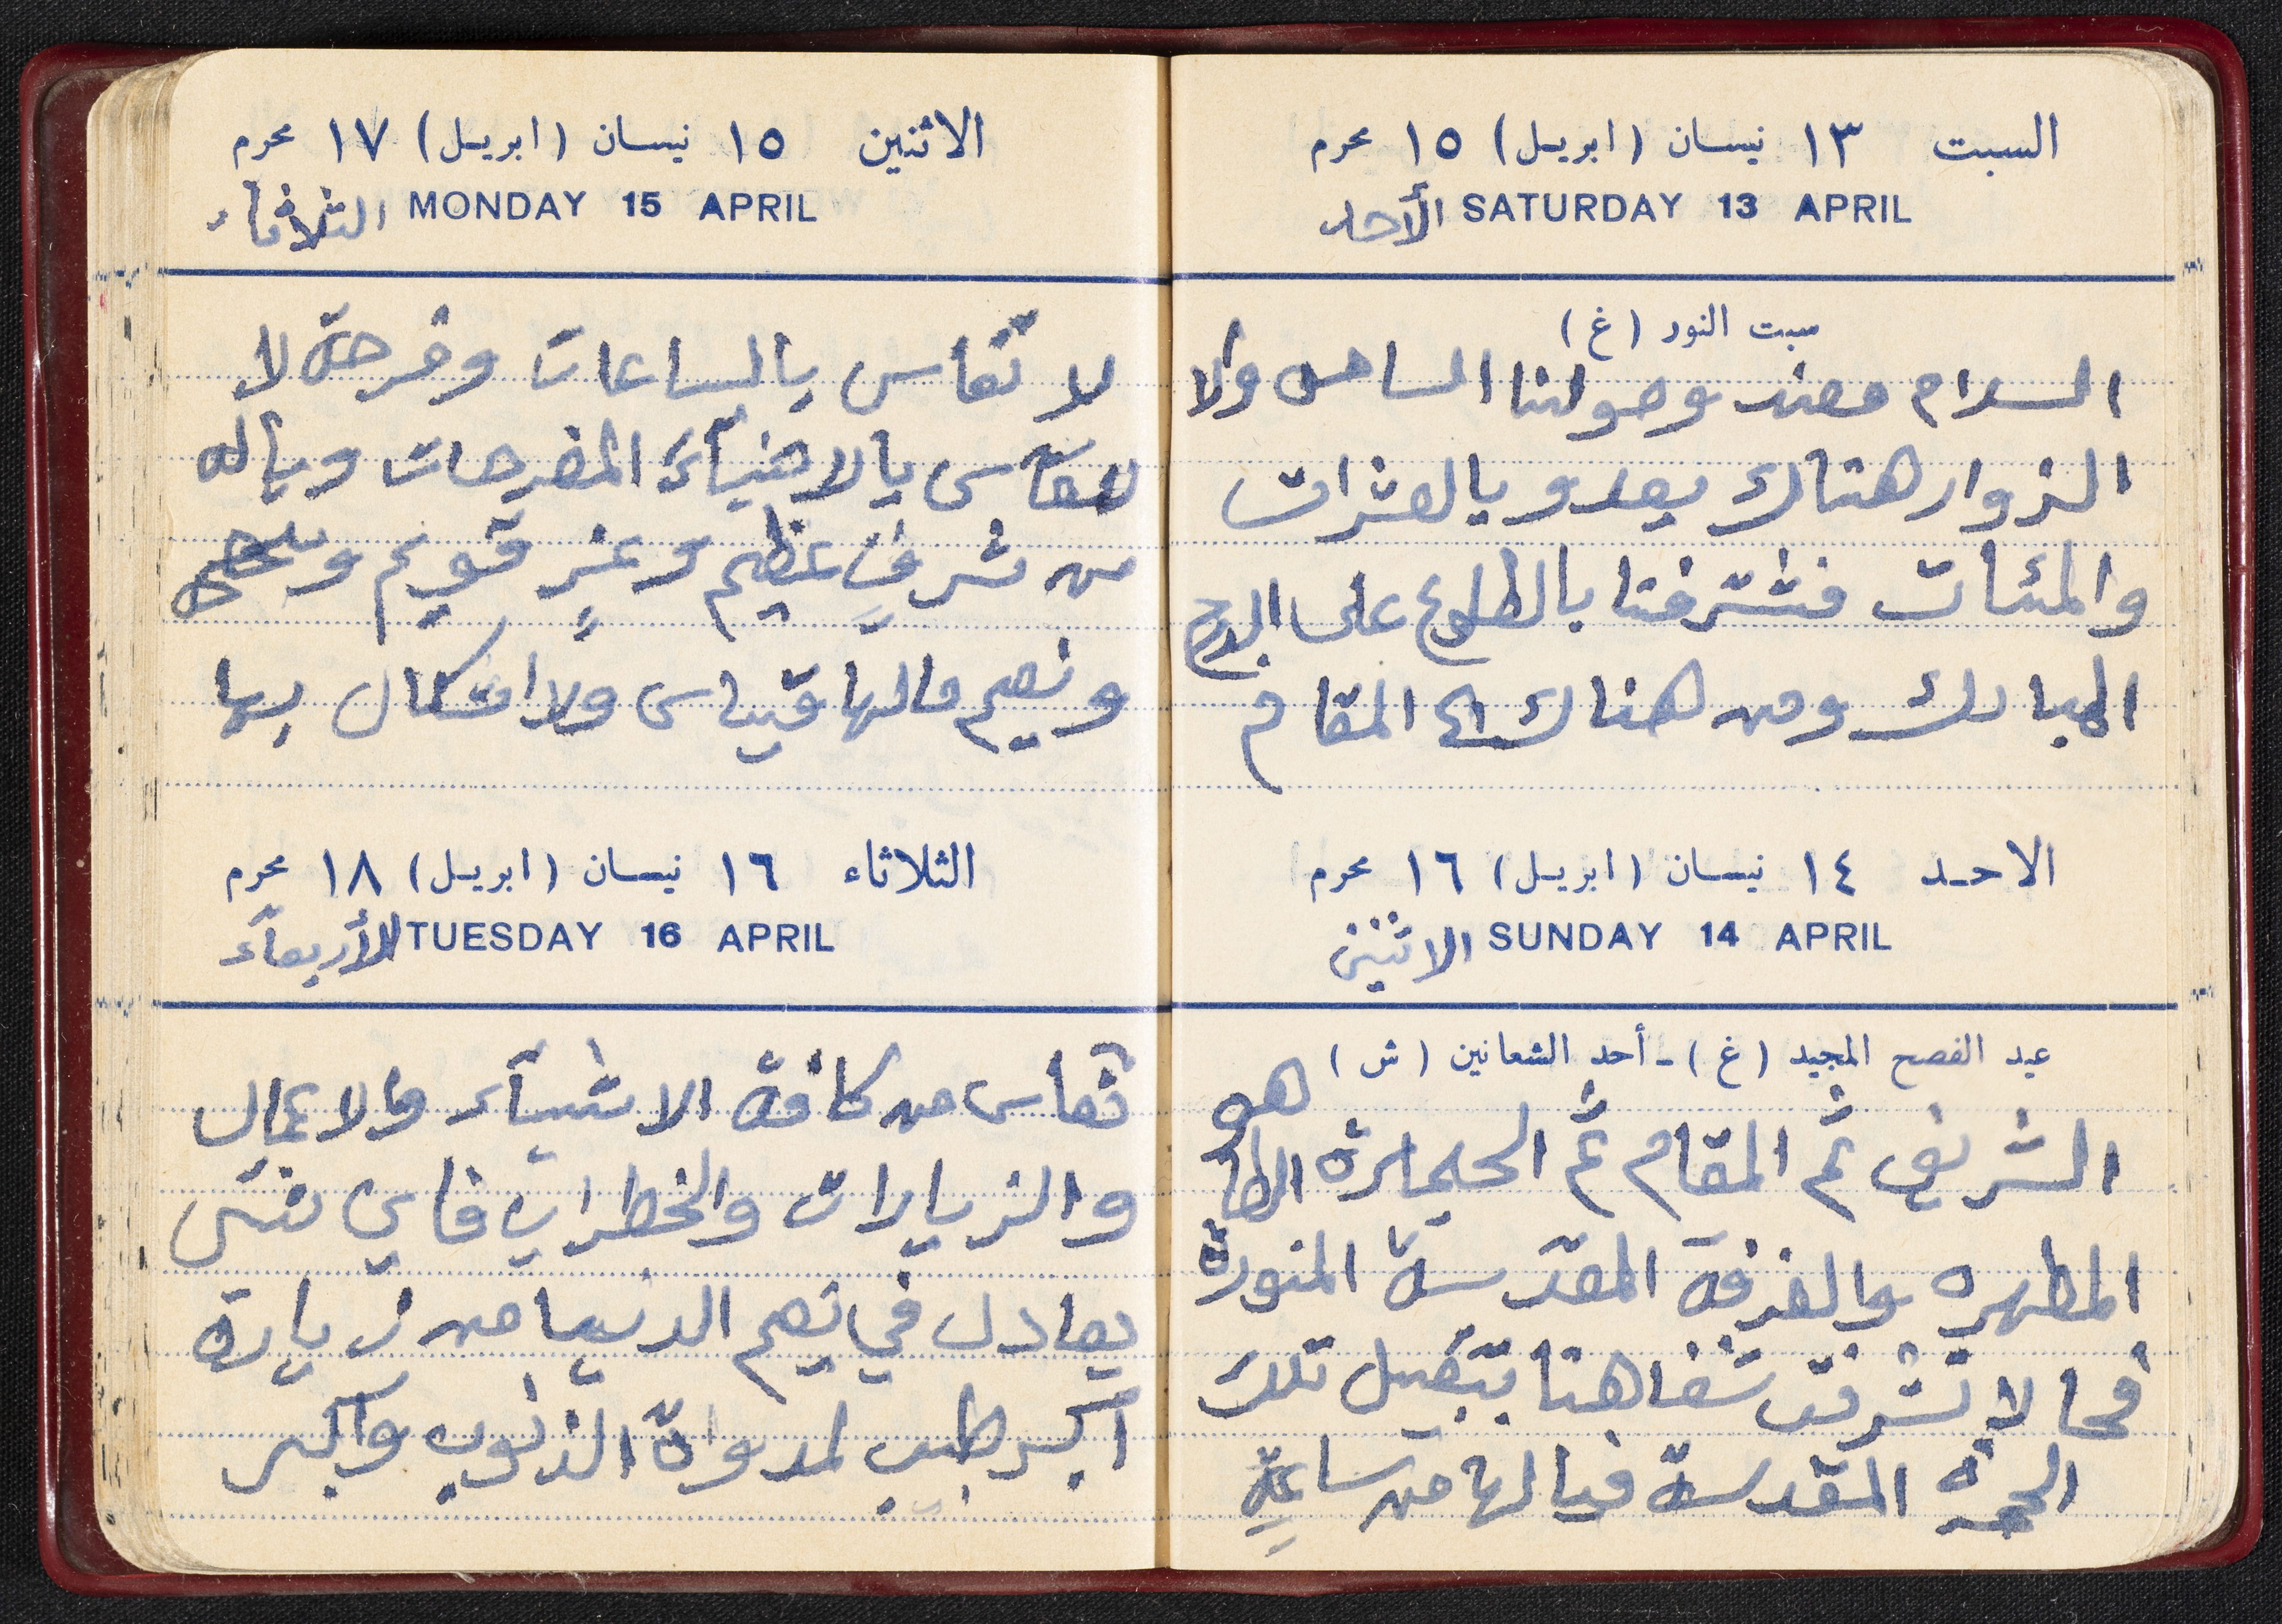 السبت ١٣ نيسان (ابريل) ١٥ محرم
SATURDAY 13 APRIL الأحد
سبت النور (غ)
السلام وعند وصولنا الساحل ولا
الزوار هناك يعدو بالعشرات
والمئات فتشرفنا بالطلوع على الدرج
المبارك ومن هناك الى المقام
الاحد ١٤ نيسان (ابريل) ١٦ محرم
SUNDAY 14 APRIL الاثنين
عيد الفصح المجيد (غ) - أحد الشعانين (ش)
الشريف ثم المقام ثم الحجرة الطاهره
المطهره والغرفة المقدسة المنورة
فحالا تشرفت شفاهنا بتقبيل تلك
الحجرة المقدسة فيالها من ساعةٍ
الاثنين ١٥ نيسان (ابريل) ١٧ محرم
MONDAY 15 APRIL الثلاثاء
لا تقاس بالساعات وفرحة لا
تقاس بالاشياء المفرحات وياله
من شرفٍ عظيم وعزٍ قويم
ونعيم مالها قياس ولا اشكال بها
الثلاثاء ١٦ نيسان (ابريل) ١٨ محرم
TUESDAY 16 APRIL الأربعاء
تقاس من كافة الاشيآء والاعمال
والزيارات والخطرات فاي شىء
يعادل في نعيم الدنيا من زيارة
اكبر طبيب لمدواة الذنوب وأكبر